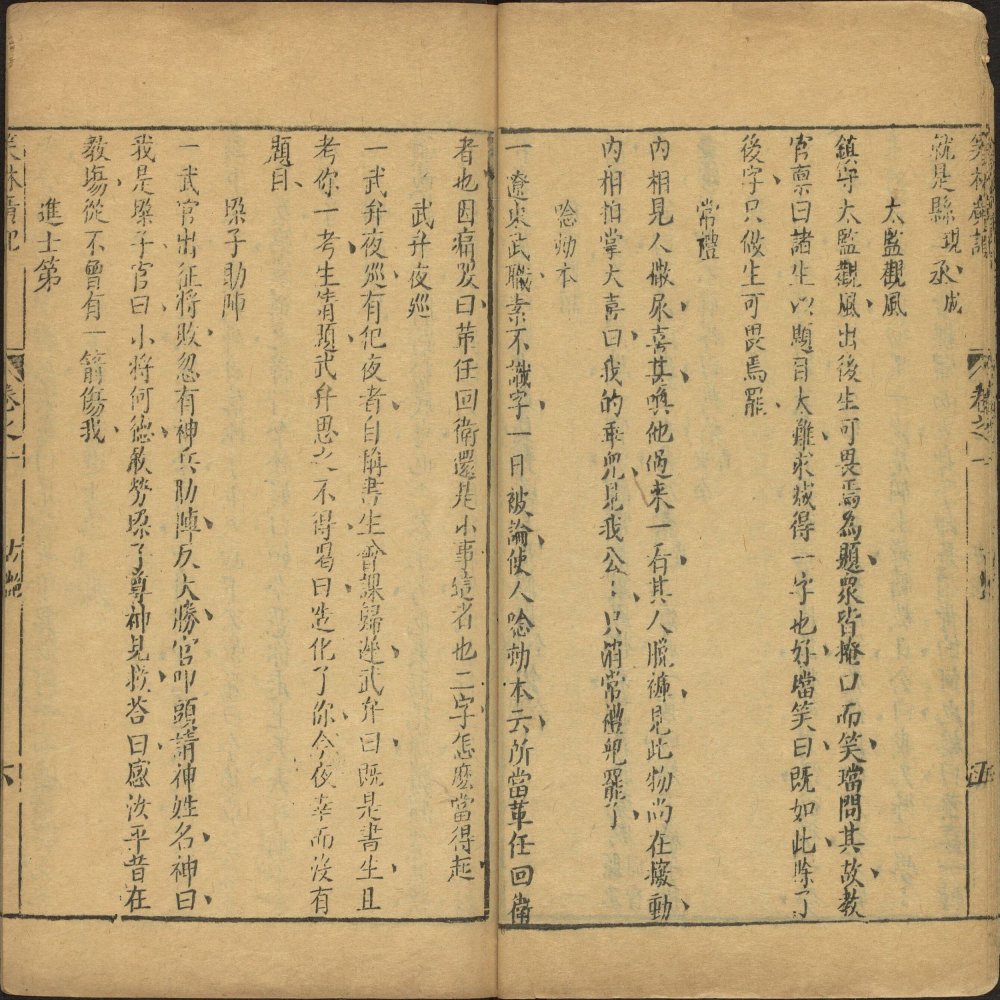 就是縣現丞成
太監觀風
鎮守太監觀風出後生可畏焉為題眾皆掩口而笑璫問其故教
官禀曰諸生以題目太難求減得一字也好璫笑曰既如此除了
後字只做生可畏焉罷
常禮
內相見人撒尿喜其喚他過来一看其人脫褲見此物尚在癈動
內相拍掌大喜曰我的乖兜見我公：只消常禮兜罷了
唸劾本
一遼東武職素不識字一日被論使人唸劾本云所當革任回衛
者也因痛哭曰革任回衛還是小事這者也二字怎麽當得起
武弁夜巡
一武弁夜巡有犯夜者自稱書生會課歸遲武弁曰既是書生且
考你一考生請題武弁思之不得喝曰造化了你今夜幸而沒有
題目
垛子助陣
一武官出征將敗忽有神兵助陣反大勝官叩頭請神姓名神曰
我是垛子官曰小將何德敢勞垛子尊神見救荅曰感汝平昔在
教塲從不曾有一箭傷我
進士第
卷之一
六